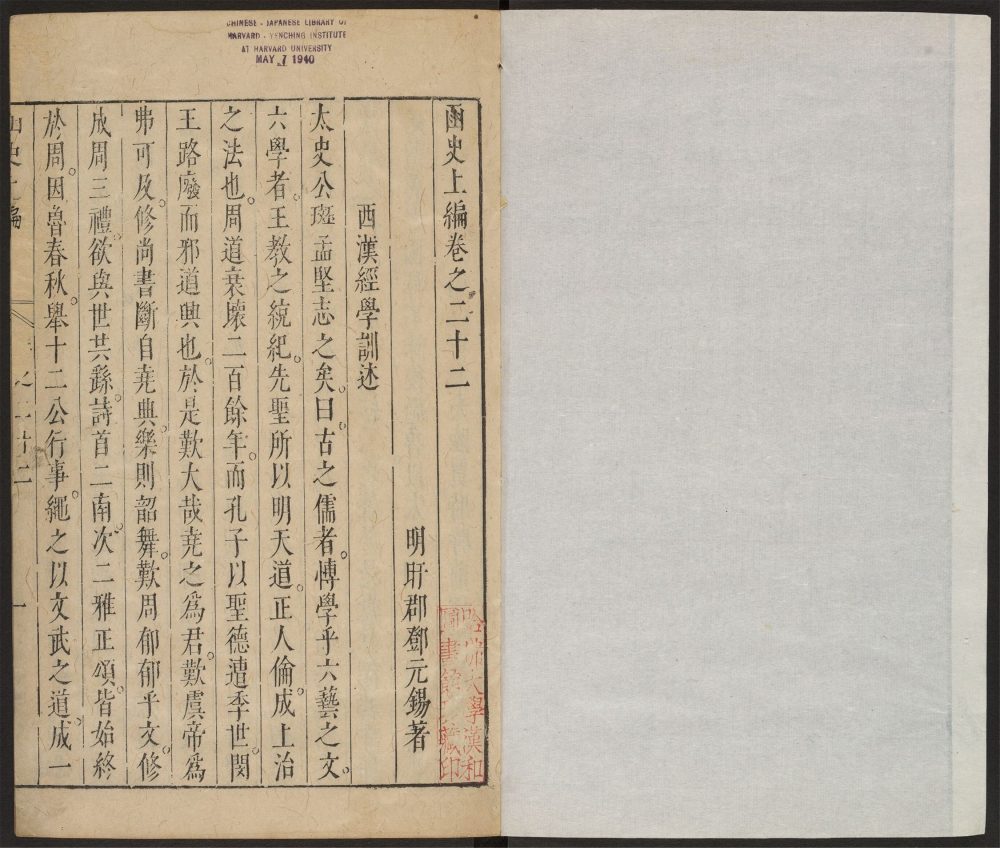 CHINESE - JAPANESE LIBRARY OF
HARVARD - YENCHING INSTITUTE
AT HARVARD UNIVERSITY
MAY 7 1940
函史上編卷之二十二
明盱郡鄧元錫著
西漢經學訓述
太史公班孟堅志之矣。曰。古之儒者。慱學乎六藝之文。
六學者。王教之統紀。先聖所以明天道。正人倫。成上治
之法也。周道衰壞二百餘年。而孔子以聖德遭季世。閔
王路廢而邪道興也。於是歎大哉堯之爲君。歎虞帝爲
弗可及。修尚書斷自堯典。樂則韶舞。歎周郁郁乎文。修
成周三禮。欲與世共繇。詩首二南。次二雅正頌。皆始終
於周。因魯春秋。舉十二公行事。繩之以文武之道。成一
哈佛大學漢和
圖書館珍藏印